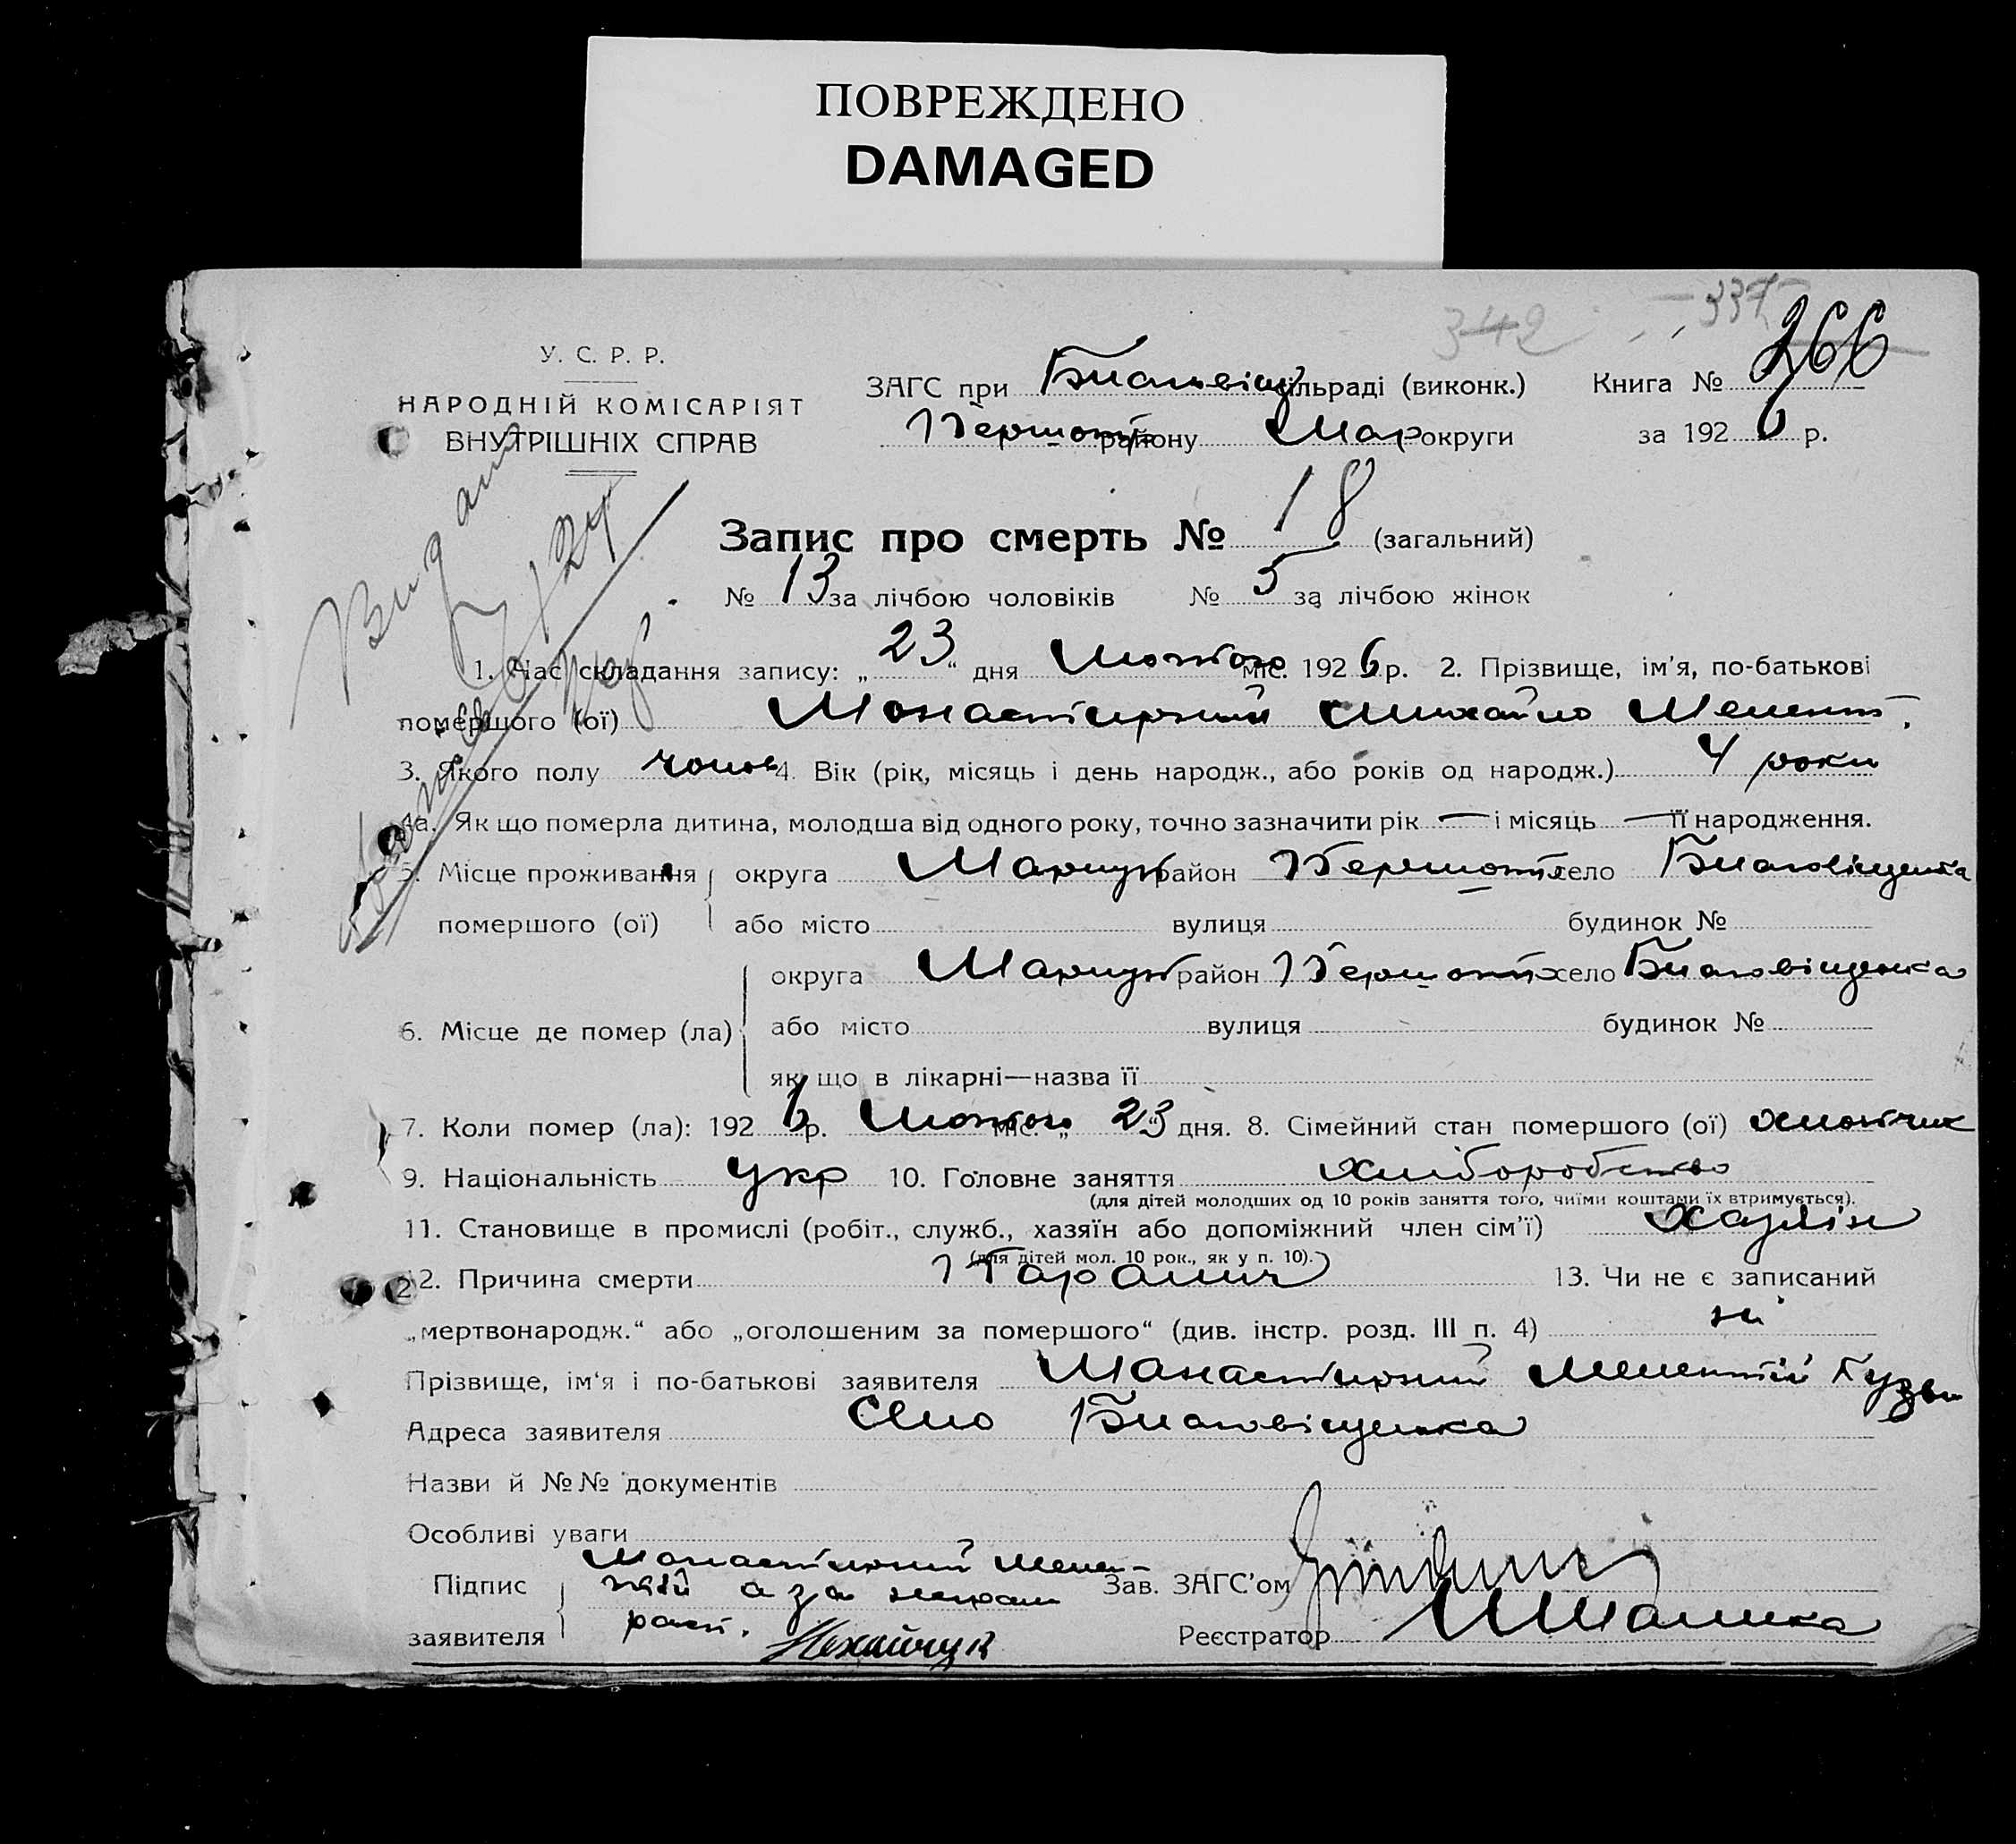 ПОВРЕЖДЕНО
DAMAGED
342 337
У. С. Р. Р.
НАРОДНІЙ КОМІСАРІЯТ
ВНУТРІШНІХ СПРАВ
ЗАГС при Благовіщ сільраді (виконк.) Книга № 266
Першотр району Мар округи за 1926 р.
Запис про смерть № 18 (загальний)
№ 13 за лічбою чоловіків № 5 за лічбою жінок
1. Час складання запису: „23“ дня Лютого міс. 1926 р. 2. Прізвище, ім'я, по-батькові
помершого (ої) Монастирний Михайло Мелент.
3. Якого полу чолов 4. Вік (рік, місяць і день народж., або років од народж.) 4 роки
4а. Як що померла дитина, молодша від одного року, точно зазначити рік — і місяць — її народження.
5. Місце проживання округа Маріуп район Першотр село Благовіщенка
помершого (ої) або місто вулиця будинок №
округа Маріуп район Першотр село Благовіщенка
6. Місце де помер (ла) або місто вулиця будинок №
як що в лікарні—назва її
7. Коли помер (ла): 1926 р. Лютого міс. „23“ дня. 8. Сімейний стан помершого (ої) хлопчик
9. Національність укр 10. Головне заняття хліборобство
(для дітей молодших од 10 років заняття того, чиїми коштами їх втримується).
11. Становище в промислі (робіт., служб., хазяїн або допоміжний член сім'ї) хазяїн
(для дітей мол. 10 рок., як у п. 10).
12. Причина смерти 13. Чи не є записаний
„мертвонародж.“ або „оголошеним за помершого“ (див. інстр. розд. III п. 4) ні
Прізвище, ім'я і по-батькові заявителя Монастирний Мелентій Кузьм
Адреса заявителя Село Благовіщенка
Назви й №№ документів
Особливі уваги
Монастирний Мелен-
Підпис тій а за неграм Зав. ЗАГС'ом
заявителя расп. Реєстратор